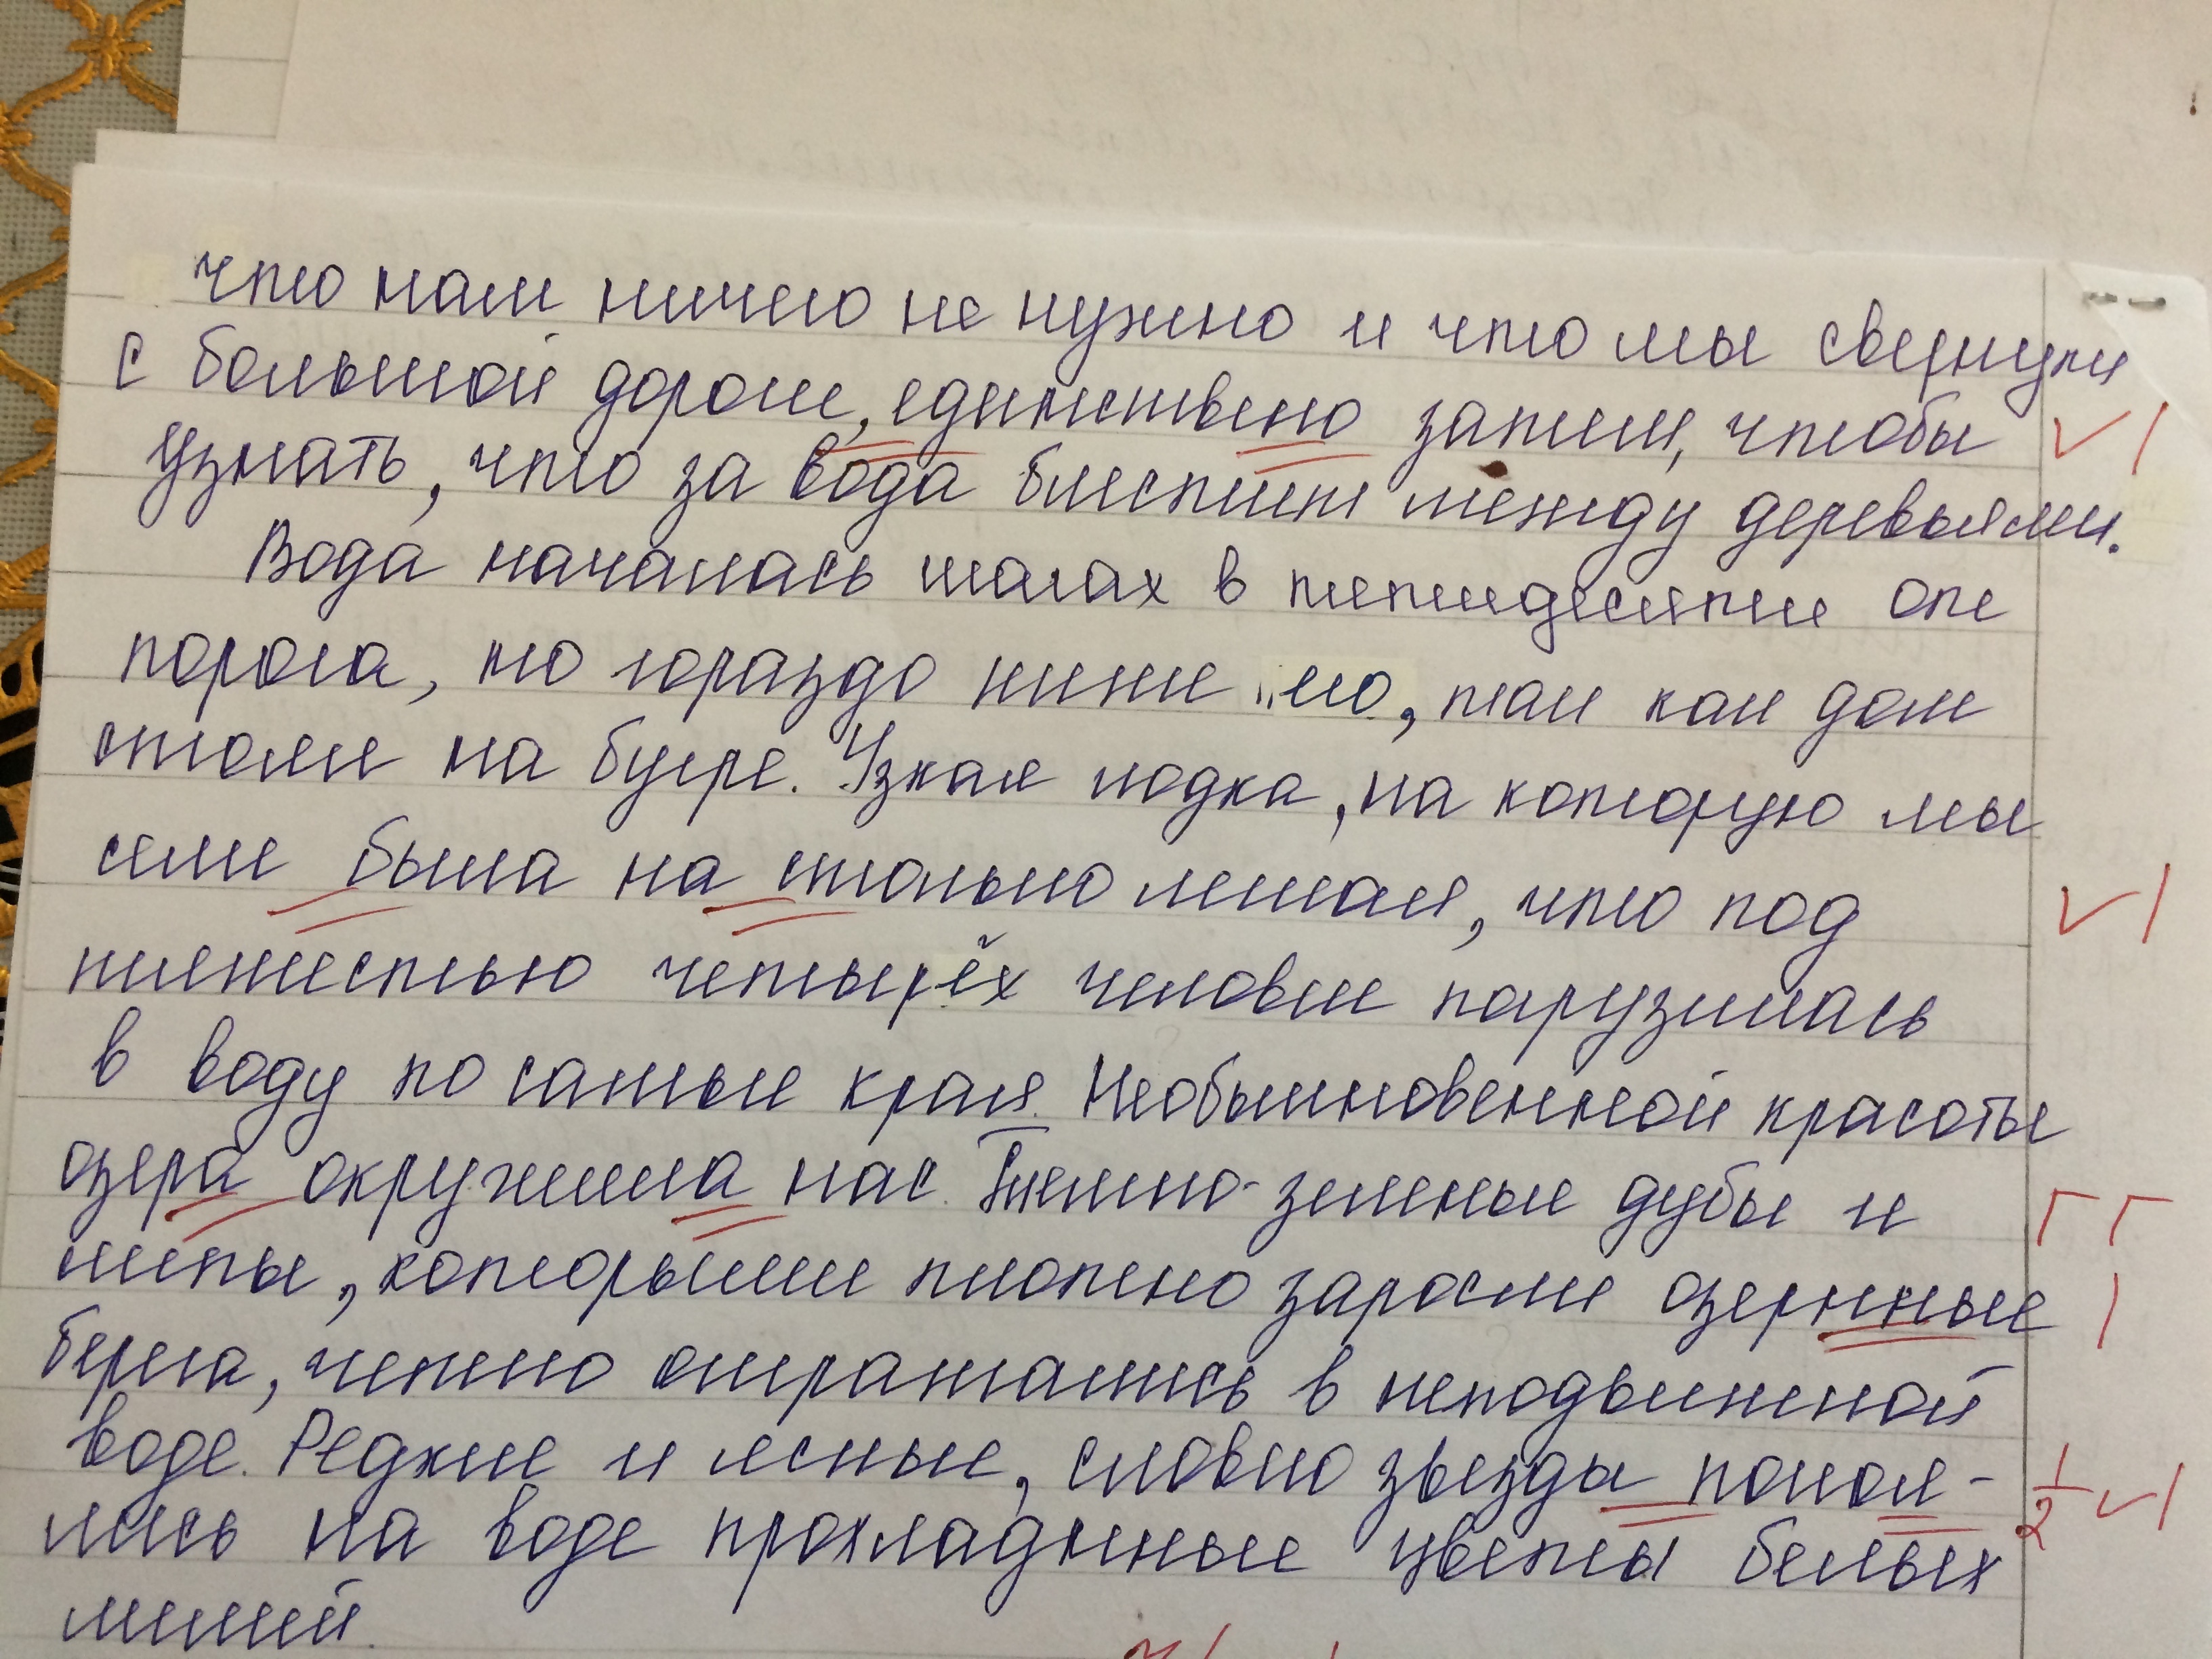 что нам ничего не нужно и что мы свернули
с большой дороги, единствено затем, чтобы
узнать, что за вода блестит между деревьями.
Вода началась шагах в пятидесяти от
порога, но гораздо ниже его, так как дом
стоял на бугре. Узкая лодка, на которую мы
сели была на столько легкая, что под
тяжестью четырёх человек погрузилась
в воду по самые края. Необыкновенной красоты
озера окружила нас. Темно-зеленые дубы и
липы, которыми плотно заросли озернные
берега, четко отражались в неподвижной
воде. Редкие и ясные, словно звезды покоя-
лись на воде прохладные цветы белых
лилий.